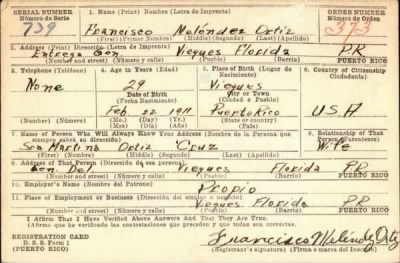 SERIAL NUMBER 1. Name (Print) Nombre (Letra de Imprenta) ORDER NUMBER
Número de Serie Número de Orden
739 Francisco Meléndez Ortiz 373
(First) (Primer Nombre) (Middle) (Segundo) (Last) (Apellido)
2. Address (Print) Dirección (Letra de Imprenta)
Entrega Gen Vieques Florida P.R
(Number and street) (Número y calle) (Town) (Pueblo) (Barrio) PUERTO RICO
3. Telephone (Teléfono) 4. Age in Years (Edad) 5. Place of Birth (Lugar de Nacimiento) 6. Country of Citizenship (Ciudadanía)
None 29 Vieques
Date of Birth (Fecha Nacimiento) City or Town (Ciudad o Pueblo)
Feb 22 1911 Puerto Rico USA
(Number) (Número) (Mo.) (Day) (Yr.) (State or country)
(Mes) (Día) (Año) (País)
7. Name of Person Who Will Always Know Your Address (Nombre de la Persona que siempre sabrá su dirección) 8. Relationship of That Person (Parentesco)
Ortiz Cruz Wife
(First) (Nombre) (Middle) (Segundo) (Last) (Apellido)
9. Address of That Person (Dirección de esa persona)
Gen. Del Vieques Florida P.R
(Number and street) (Número y calle) (Town) (Pueblo) (Barrio) PUERTO RICO
10. Employer's Name (Nombre del Patrono)
Propio
11. Place of Employment or Business (Dirección del empleo o negocio)
Vieques Florida P.R
(Number and street) (Número y calle) (Town) (Pueblo) (Barrio) PUERTO RICO
I Affirm That I Have Verified Above Answers And That They Are True.
(Afirmo que he verificado las contestaciones que preceden y que todas son correctas.
REGISTRATION CARD
D. S. S. Form 1
(PUERTO RICO)
Francisco Meléndez Ortiz
(Registrant's signature) (Firma o marca del Inscrito)